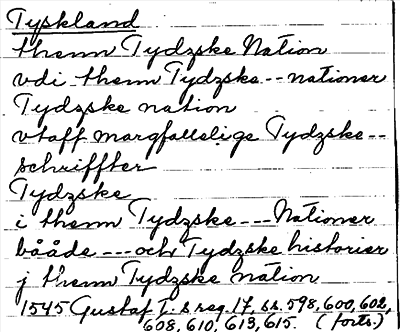 Tyskland
themn Tydzske Nation
vdi themn Tydzske -- nationer
Tydzske nation
vtaff margfallelige Tydzske --
schriffter
Tydzske
i themn Tydzske --- Nationer
bååde --- och Tydzske historier
j themn Tydzske nation
1545 Gustaf I. s reg. 17, ss. 598, 600, 602,
608, 610, 613, 615. (forts.)